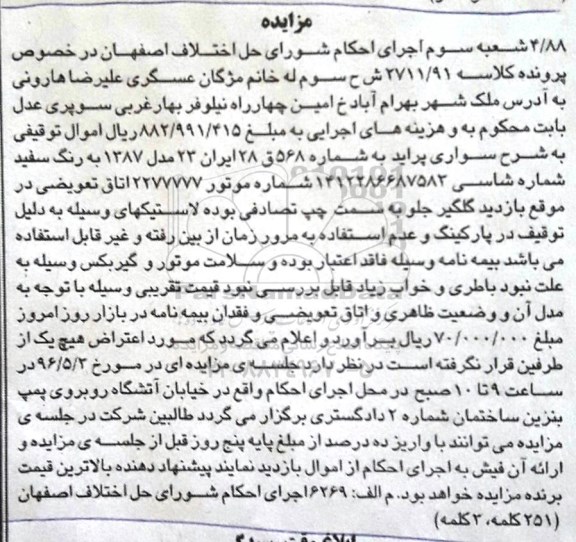 مزایده
۴/۸۸ شعبه سوم اجرای احکام شورای حل اختلاف اصفهان در خصوص
پرونده کلاسه ۲۷۱۱/۹۱ ش ح سوم له خانم مژگان عسگری علیرضا هارونی
به آدرس ملک شهر بهرام آباد خ امین چهارراه نیلوفر بهار غربی سوپری عدل
بابت محکوم به و هزینه های اجرایی به مبلغ ۸۸۲/۹۹۱/۴۱۵ ریال اموال توقیفی
به شرح سواری پراید به شماره ۵۶۸ ق ۲۸ ایران ۲۳ مدل ۱۳۸۷ به رنگ سفید
شماره شاسی ۱۴۱۲۲۸۶۶۸۷۵۸۳ شماره موتور ۲۲۷۷۷۷۷ اتاق تعویضی در
موقع بازدید گلگیر جلو سمت چپ تصادفی بوده لاستیکهای وسیله به دلیل
توقیف در پارکینگ و عدم استفاده به مرور زمان از بین رفته و غیر قابل استفاده
می باشد بیمه نامه وسیله فاقد اعتبار بوده و سلامت موتور و گیربکس وسیله به
علت نبود باطری و خواب زیاد قابل بررسی نبود قیمت تقریبی وسیله با توجه به
مدل آن و وضعیت ظاهری و اتاق تعویضی و فقدان بیمه نامه در بازار روز امروز
مبلغ ۷۰/۰۰۰/۰۰۰ ریال برآورد و اعلام می گردد که مورد اعتراض هیچ یک از
طرفین قرار نگرفته است در نظر دارد جلسه ی مزایده ای در مورخ ۹۶/۵/۳ در
ساعت ۹ تا ۱۰ صبح در محل اجرای احکام واقع در خیابان آتشگاه روبروی پمپ
بنزین ساختمان شماره ۲ دادگستری برگزار می گردد طالبین شرکت در جلسه ی
مزایده می توانند با واریز ده درصد از مبلغ پایه پنج روز قبل از جلسه ی مزایده و
ارائه آن فیش به اجرای احکام از اموال بازدید نمایند پیشنهاد دهنده بالاترین قیمت
برنده مزایده خواهد بود. م الف: ۶۲۶۹ اجرای احکام شورای حل اختلاف اصفهان
(۲۵۱ کلمه، ۳ کلمه)